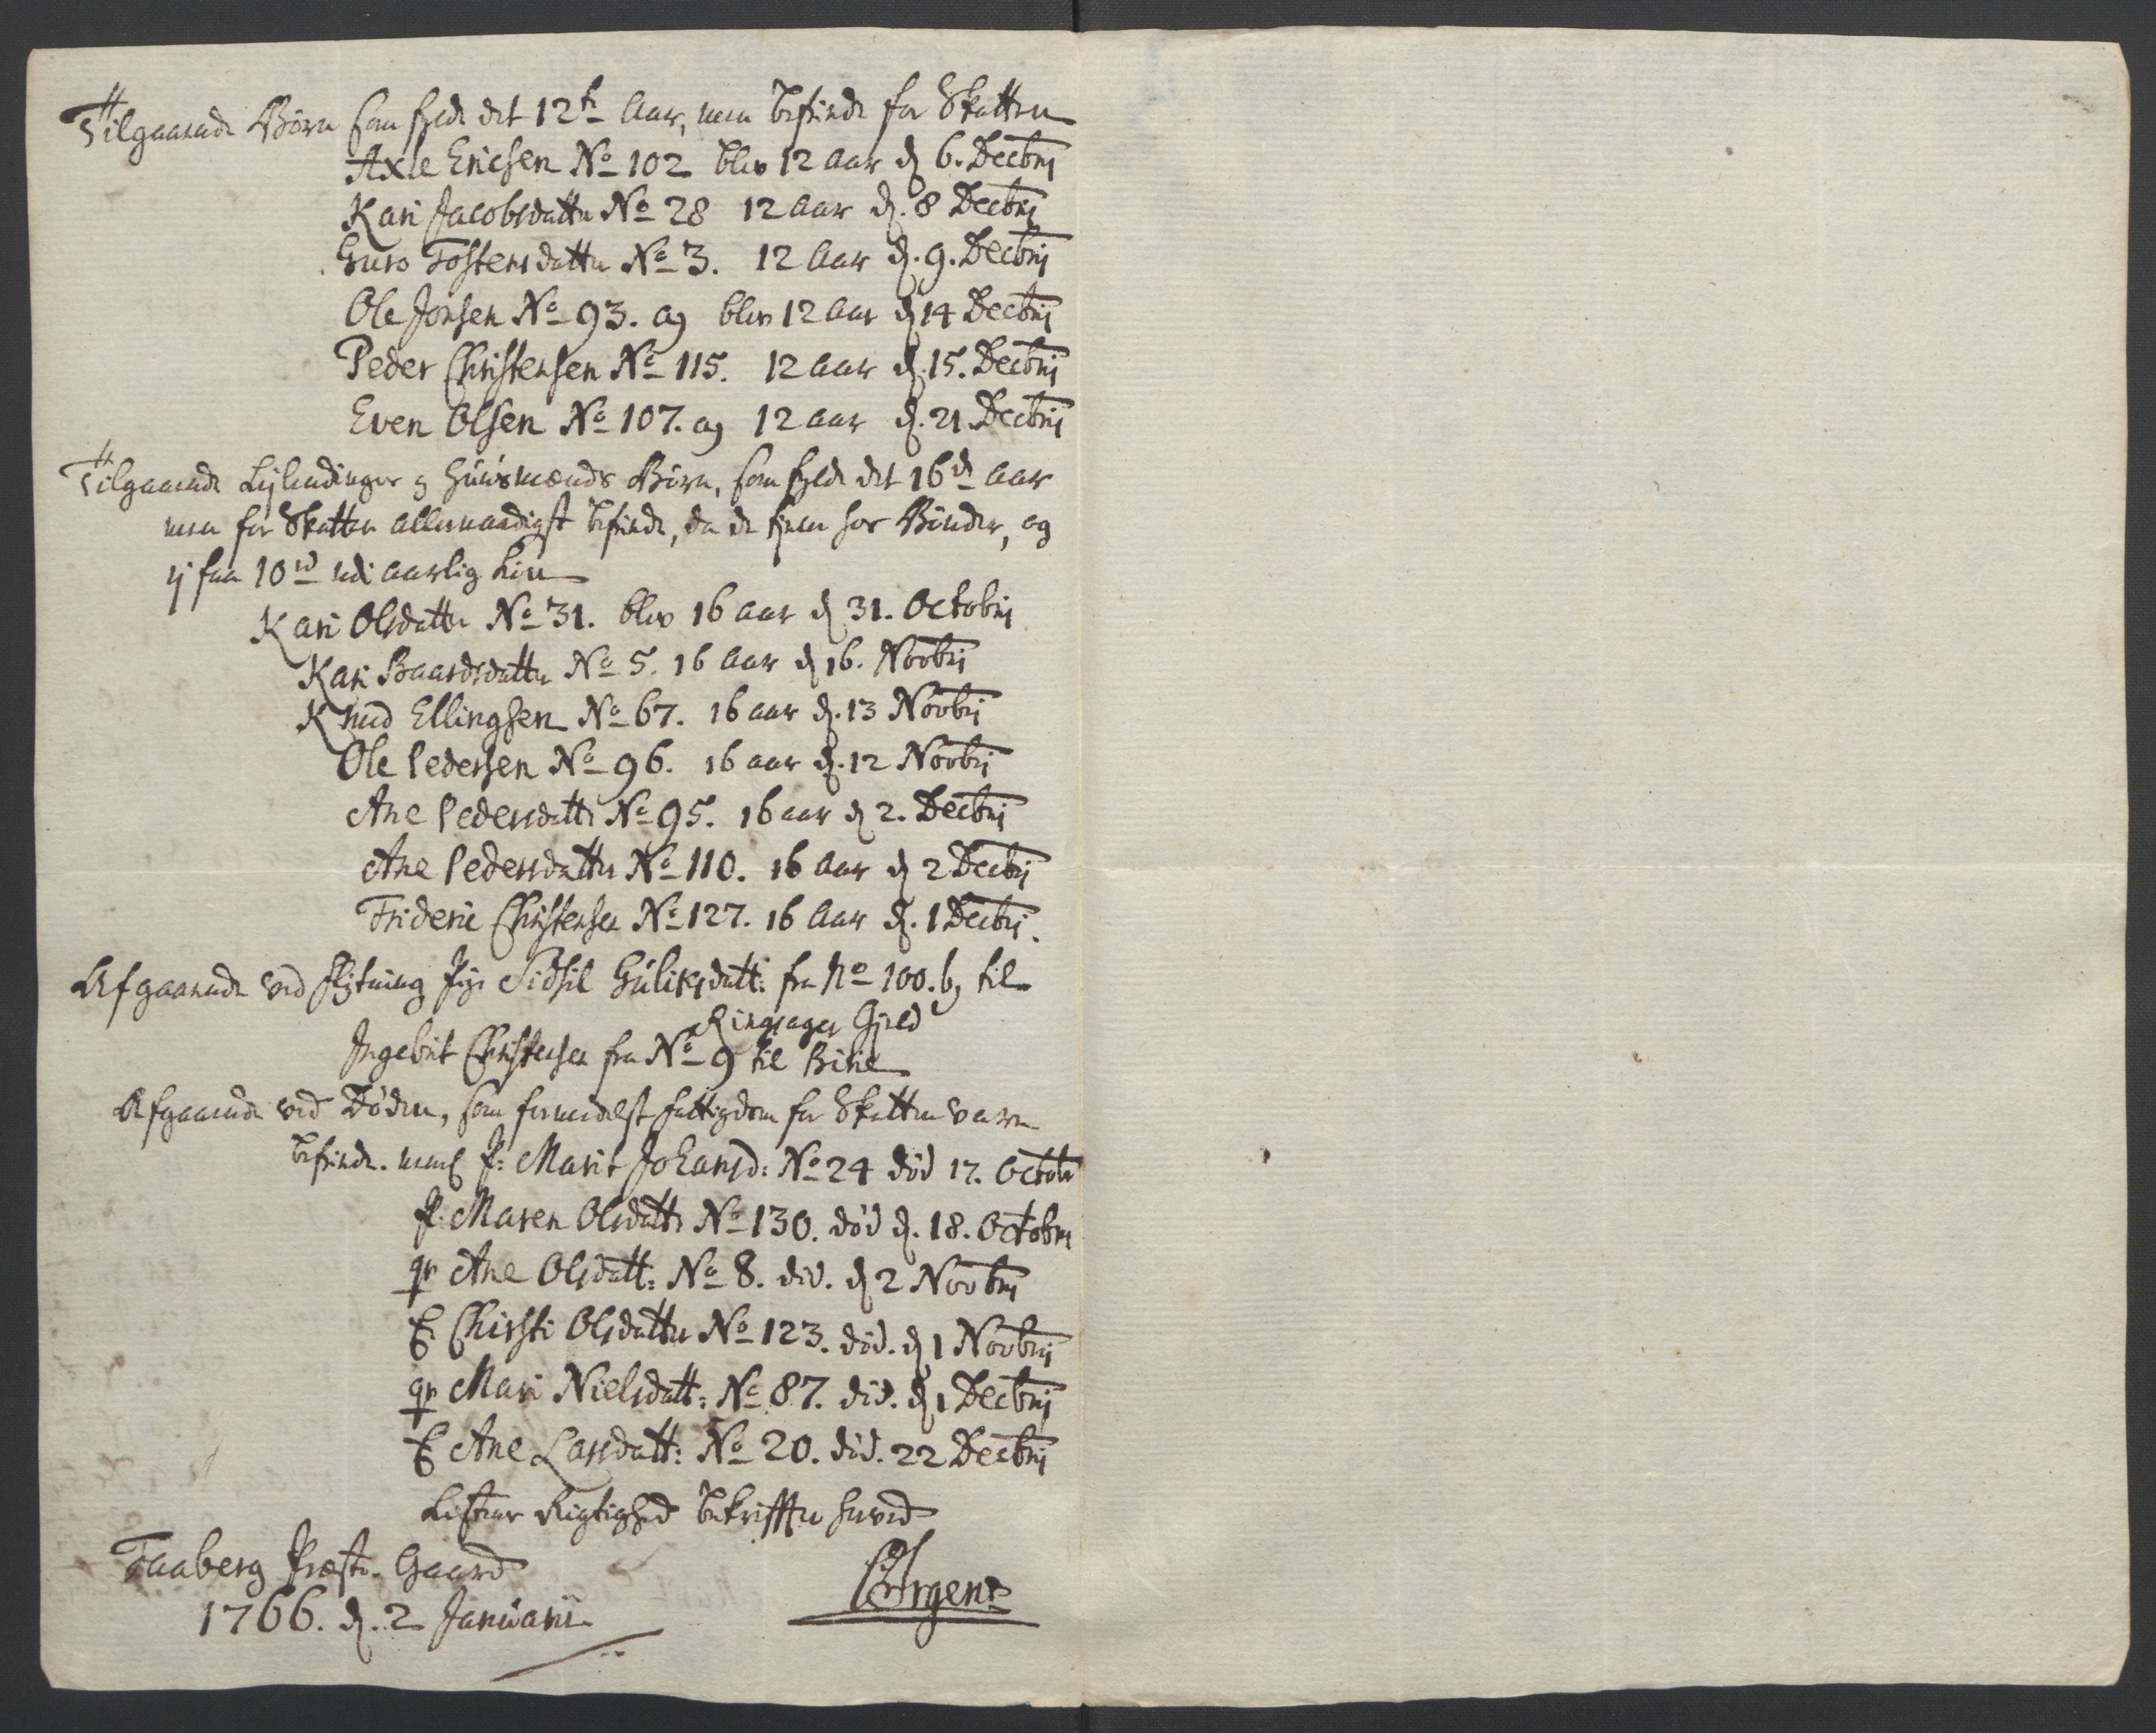 Tilgaaende Børn som fylde det 12te Aar, men befriede for Skatten
Axle Ericsen No 102 blev 12 Aar d. 6. Decbrj
Kari Jacobsdatter No 28 12 Aar d. 8 Decbrj
Guro Tostensdatter No 3. 12 Aar d. 9. Decbrj
Ole Jonsen No 93. a) blev 12 Aar d 14 Decbrj
Peder Christensen No 115. 12 Aar d. 15. Decbrj
Even Olsen No 107. a) 12 Aar d. 21 Decbrj
Tilgaaende Leilendinger og Huusmænds Børn, som fylde det 16de Aar
men for Skatten allernaadigst befriede, da de tjener hos Bønder, og
ej faa 10rd udi aarlig Løn
Kari Olsdatter No 31. blev 16 Aar d 31. Octobrj
Kari Baardsdatter No 5. 16 Aar d 16. Novbrj
Knud Ellingsen No 67. 16 aar d. 13 Novbrj
Ole Pedersen No 96. 16 aar d. 12 Novbrj
Ane Pedersdatt: No 95. 16 aar d 2. Decbrj
Ane Pedersdatter No 110. 16 Aar d 2 Decbrj
Frideric Christensen No 127. 16 Aar d. 1 Decbrj.
Afgaaende ved flytning Pige Sidsil Guliksdatt: fra No 100. b) til
Ringsager Gjeld
Ingebrit Christensen fra No 9 til Birie
Afgaaende ved Døden, som formedelst fattigdom for Skatten vare
befriede. neml P: Marit Johansd: No 24 død 17. Octobr
P: Maren Olsdatt: No 130. død d. 18. Octobrj
qv Ane Olsdatt: No 8. død. d 2 Novbrj
E. Chirsti Olsdatter No 123. død. d 1 Novbrj
qv Mari Nielsdatt: No 87. død. d 1 Decbrj
E Ane Larsdatt: No 20. død. 22 Decbrj
Listens Rigtighed bekrifter herved
Faaberg Præste-Gaard
1766. d. 2 Januarii